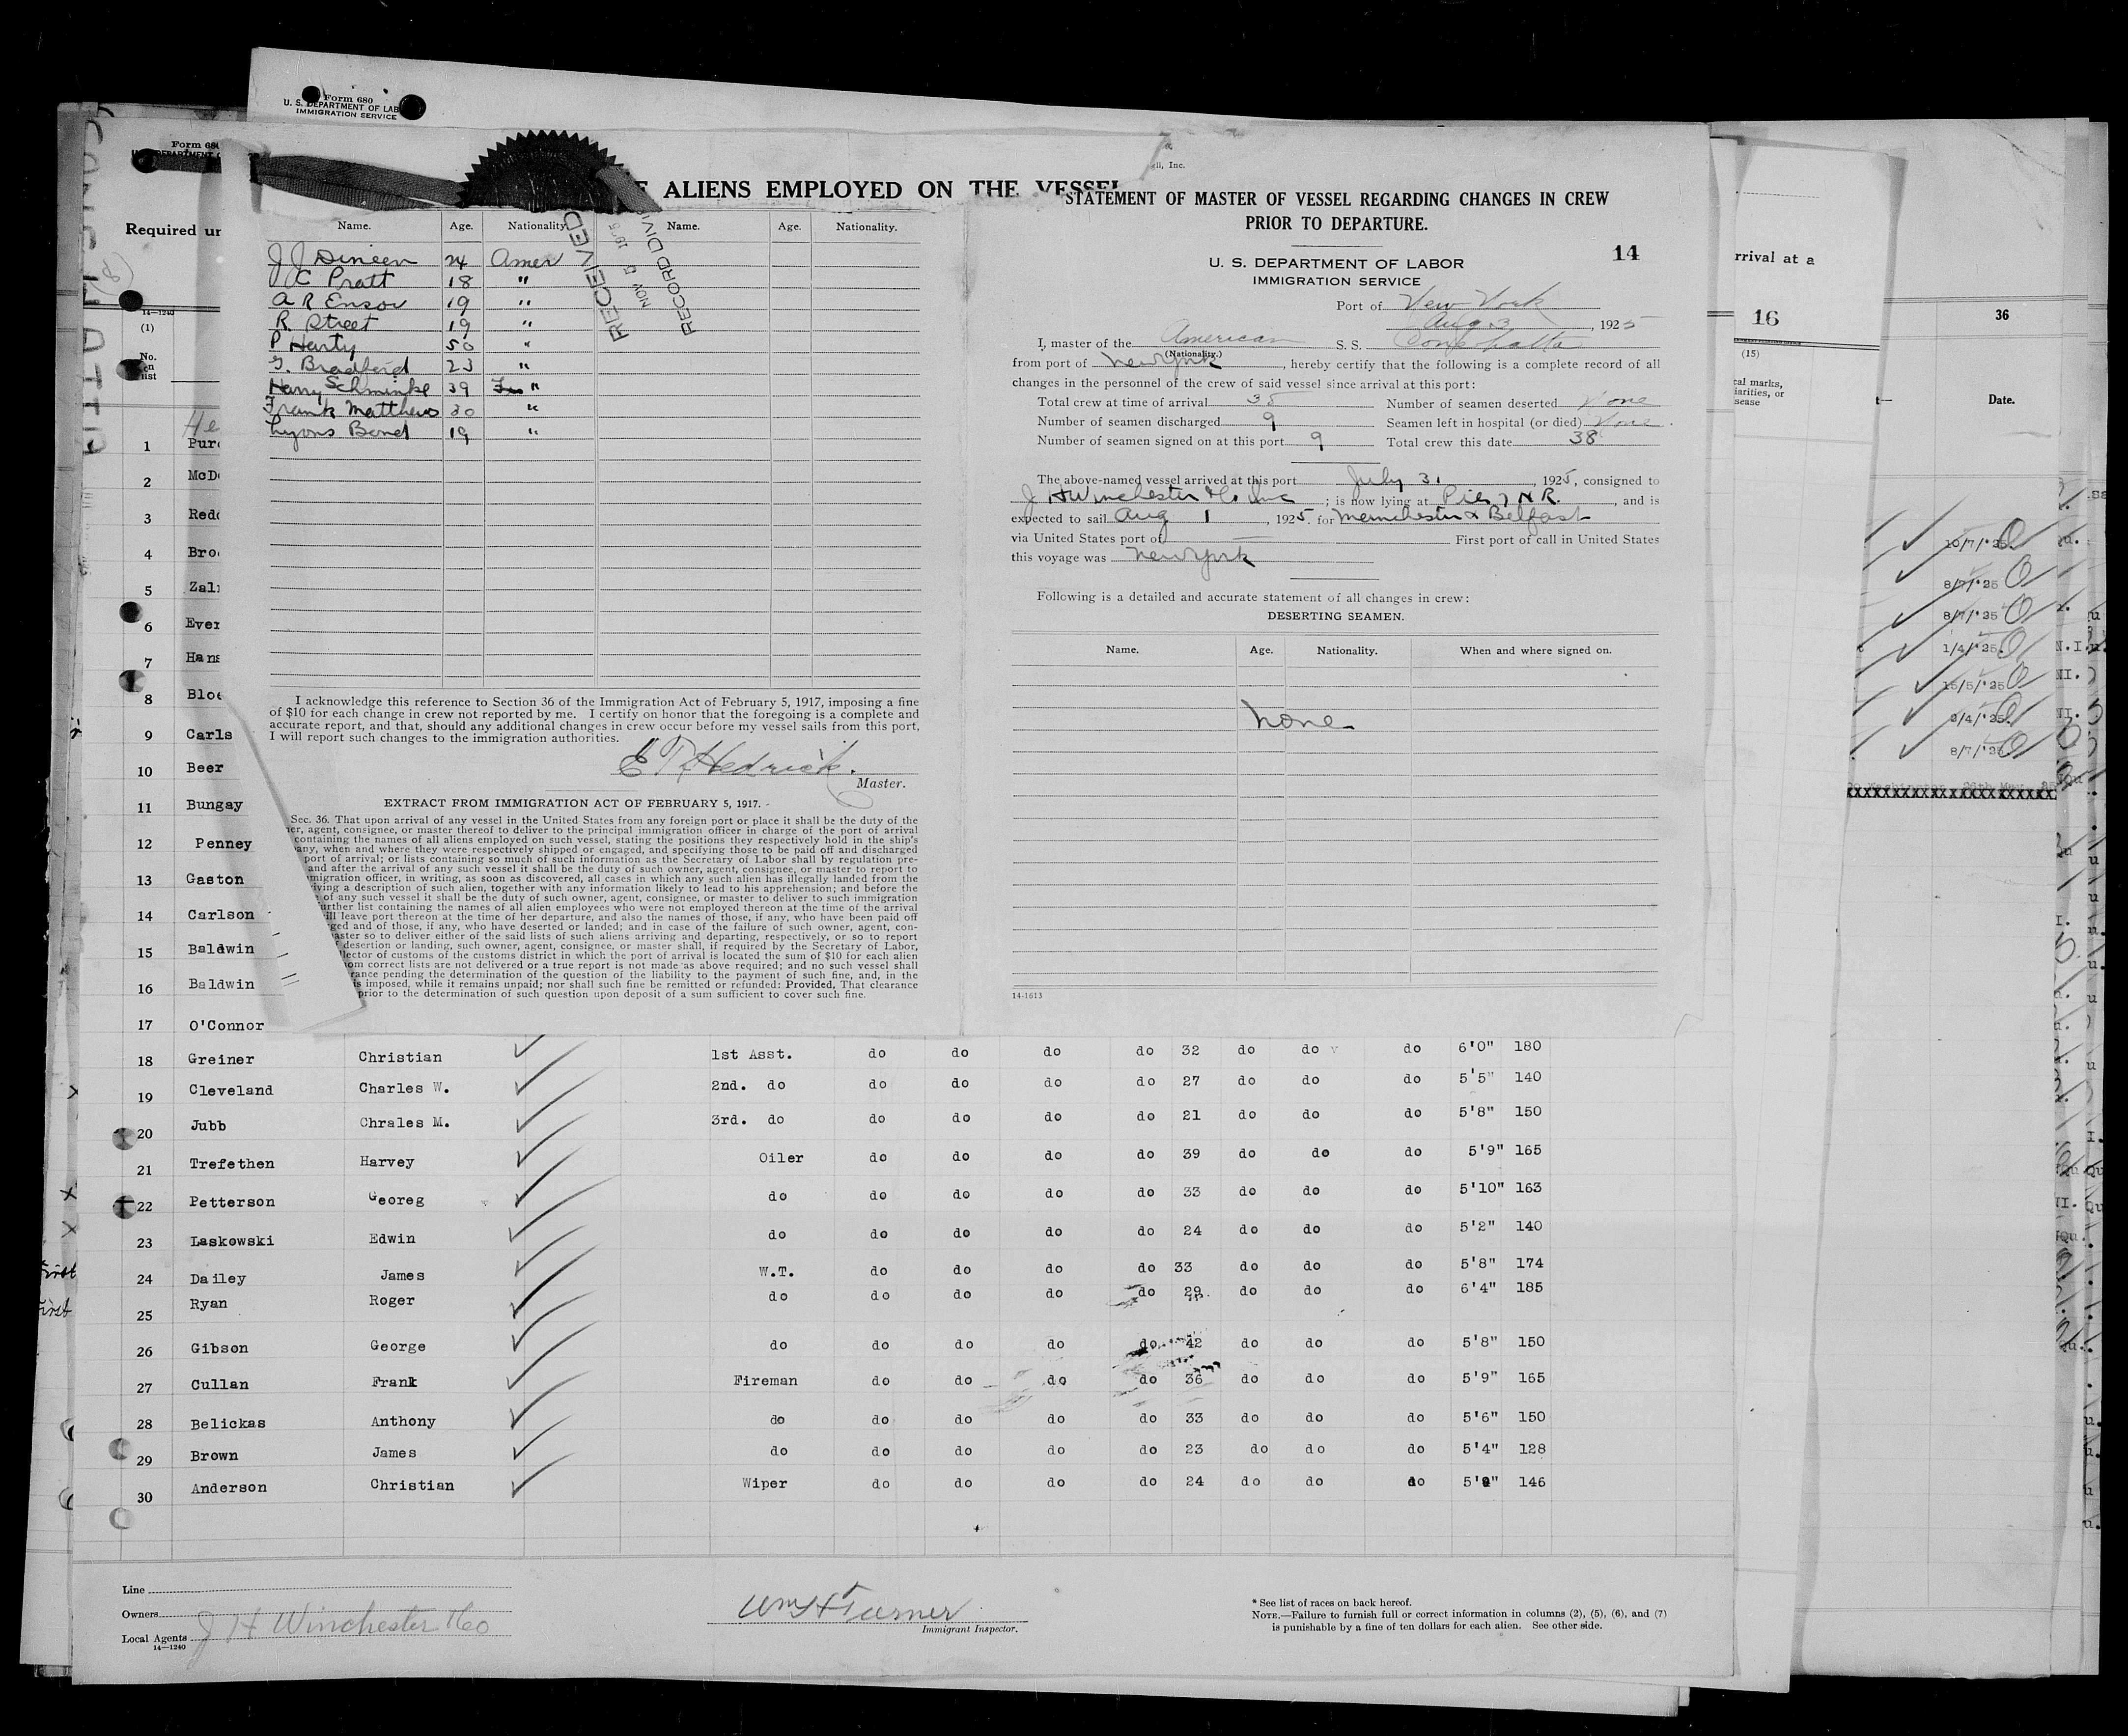 Form 680
U. S. DEPARTMENT OF LAB
IMMIGRATION SERVICE
Form 680
Required un
14—1240
(1)
No.
on
list
ALIENS EMPLOYED ON THE VESSEL
Name. Age. Nationality. Name. Age. Nationality.
RECEIVED
NOV 1925
RECORD DIV
J J Dineen 24 Amer
C Pratt 18 "
A R Ensor 19 "
R. Street 19 "
P Harty 50 "
G. Bradford 23 "
Harry Schminke 39 "
Frank Matthews 30 "
Lyons Bond 19 "
I acknowledge this reference to Section 36 of the Immigration Act of February 5, 1917, imposing a fine
of $10 for each change in crew not reported by me. I certify on honor that the foregoing is a complete and
accurate report, and that, should any additional changes in crew occur before my vessel sails from this port,
I will report such changes to the immigration authorities.
E T Hedrick.
Master.
EXTRACT FROM IMMIGRATION ACT OF FEBRUARY 5, 1917.
Sec. 36. That upon arrival of any vessel in the United States from any foreign port or place it shall be the duty of the
er, agent, consignee, or master thereof to deliver to the principal immigration officer in charge of the port of arrival
containing the names of all aliens employed on such vessel, stating the positions they respectively hold in the ship's
any, when and where they were respectively shipped or engaged, and specifying those to be paid off and discharged
port of arrival; or lists containing so much of such information as the Secretary of Labor shall by regulation pre-
and after the arrival of any such vessel it shall be the duty of such owner, agent, consignee, or master to report to
migration officer, in writing, as soon as discovered, all cases in which any such alien has illegally landed from the
iving a description of such alien, together with any information likely to lead to his apprehension; and before the
of any such vessel it shall be the duty of such owner, agent, consignee, or master to deliver to such immigration
urther list containing the names of all alien employees who were not employed thereon at the time of the arrival
ill leave port thereon at the time of her departure, and also the names of those, if any, who have been paid off
ged and of those, if any, who have deserted or landed; and in case of the failure of such owner, agent, con-
aster so to deliver either of the said lists of such aliens arriving and departing, respectively, or so to report
f desertion or landing, such owner, agent, consignee, or master shall, if required by the Secretary of Labor,
llector of customs of the customs district in which the port of arrival is located the sum of $10 for each alien
om correct lists are not delivered or a true report is not made as above required; and no such vessel shall
rance pending the determination of the question of the liability to the payment of such fine, and, in the
is imposed, while it remains unpaid; nor shall such fine be remitted or refunded: Provided, That clearance
prior to the determination of such question upon deposit of a sum sufficient to cover such fine.
ell, Inc.
STATEMENT OF MASTER OF VESSEL REGARDING CHANGES IN CREW
PRIOR TO DEPARTURE.
14
U. S. DEPARTMENT OF LABOR
IMMIGRATION SERVICE
Port of New York
Aug 3, 1925
I, master of the American S. S. Conehatta
(Nationality.)
from port of New York, hereby certify that the following is a complete record of all
changes in the personnel of the crew of said vessel since arrival at this port:
Total crew at time of arrival 38 Number of seamen deserted None
Number of seamen discharged 9 Seamen left in hospital (or died) None
Number of seamen signed on at this port 9 Total crew this date 38
The above-named vessel arrived at this port July 31, 1925, consigned to
J H Winchester & Co Inc; is now lying at Pier 7 N R., and is
expected to sail Aug 1, 1925. for Manchester & Belfast
via United States port of — First port of call in United States
this voyage was New York
Following is a detailed and accurate statement of all changes in crew:
DESERTING SEAMEN.
Name. Age. Nationality. When and where signed on.
None
14-1613
rrival at a
16
(15)
cal marks,
iarities, or
sease
36
Date.
10/7/'25.
8/7/'25
8/7/'25
1/4/'25.
15/5/'25
3/4/'25.
8/7/'25
1 Purc
2 McD
3 Redd
4 Bro
5 Zal
6 Ever
7 Hans
8 Bloe
9 Carls
10 Beer
11 Bungay
12 Penney
13 Gaston
14 Carlson
15 Baldwin
16 Baldwin
17 O'Connor
18 Greiner Christian 1st Asst. do do do do 32 do do do 6'0" 180
19 Cleveland Charles W. 2nd. do do do do do 27 do do do 5'5" 140
20 Jubb Chrales M. 3rd. do do do do do 21 do do do 5'8" 150
21 Trefethen Harvey Oiler do do do do 39 do do do 5'9" 165
22 Petterson Georeg do do do do do 33 do do do 5'10" 163
23 Laskowski Edwin do do do do do 24 do do do 5'2" 140
24 Dailey James W.T. do do do do 33 do do do 5'8" 174
25 Ryan Roger do do do do do 29 do do do 6'4" 185
26 Gibson George do do do do do 42 do do do 5'8" 150
27 Cullan Frank Fireman do do do do 36 do do do 5'9" 165
28 Belickas Anthony do do do do do 33 do do do 5'6" 150
29 Brown James do do do do do 23 do do do 5'4" 128
30 Anderson Christian Wiper do do do do 24 do do do 146
Line
Owners
Local Agents J H Winchester & Co
14—1240
Wm H Turner
Immigrant Inspector.
* See list of races on back hereof.
NOTE.—Failure to furnish full or correct information in columns (2), (5), (6), and (7)
is punishable by a fine of ten dollars for each alien. See other side.